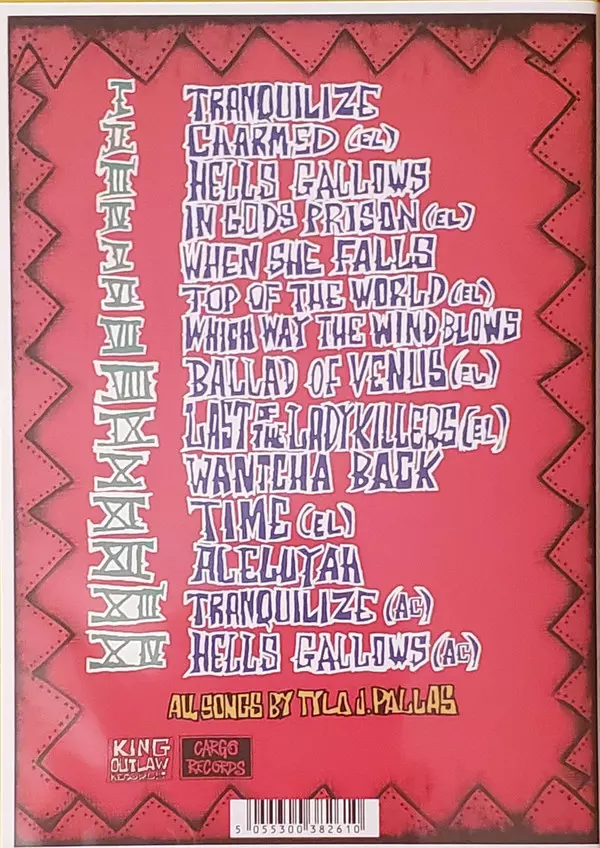 I TRANQUILIZE
II CHARMED (EL)
III HELLS GALLOWS
IV IN GODS PRISON (EL)
V WHEN SHE FALLS
VI TOP OF THE WORLD (EL)
VII WHICH WAY THE WIND BLOWS
VIII BALLAD OF VENUS (EL)
IX LAST OF THE LADYKILLERS (EL)
X WANTCHA BACK
XI TIME (EL)
XII ALELUYAH
XIII TRANQUILIZE (AC)
XIV HELLS GALLOWS (AC)
ALL SONGS BY TYLA J. PALLAS
KING OUTLAW RECORDS
CARGO RECORDS
5 055300 382610